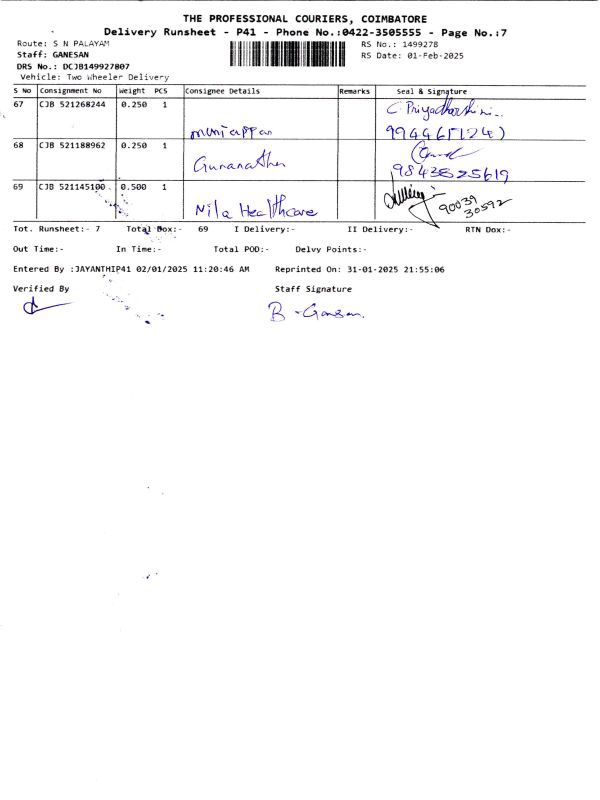 THE PROFESSIONAL COURIERS, COIMBATORE
Delivery Runsheet - P41 - Phone No.:0422-3505555 - Page No.:7
Route: S N PALAYAM
RS No.: 1499278
Staff: GANESAN
RS Date: 01-Feb-2025
DRS No.: DCJB149927807
Vehicle: Two Wheeler Delivery
S No Consignment No Weight PCS Consignee Details Remarks Seal & Signature
67 CJB 521268244 0.250 1 C. Priyadharshini
muniappan
68 CJB 521188962 0.250 1
Gunanathan
9843825619
69 CJB 521145100 0.500 1
90039
30592
Nila Healthcare
Tot. Runsheet:- 7 Total Box:- 69 I Delivery:- II Delivery:- RTN Dox:-
Out Time:- In Time:- Total POD:- Delvy Points:-
Entered By :JAYANTHIP41 02/01/2025 11:20:46 AM Reprinted On: 31-01-2025 21:55:06
Verified By Staff Signature
B - Gansan.